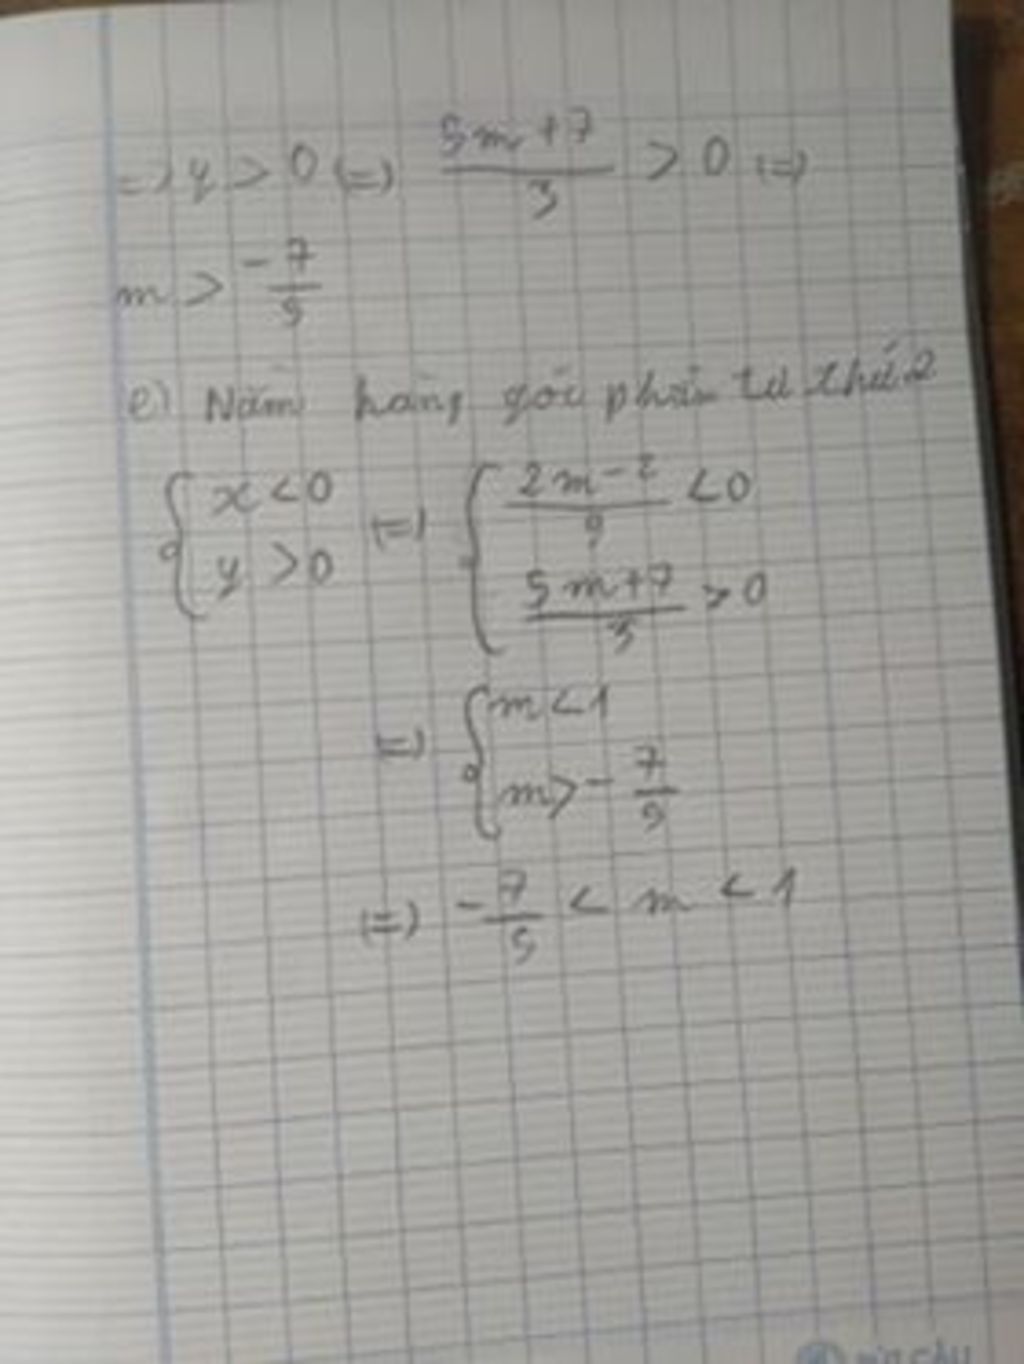 => y > 0 (=) \frac{5m+7}{3} > 0 (=)
m > \frac{-7}{5}
e) Nằm trong góc phần tư thứ 2
{ x < 0 (=) { \frac{2m-2}{9} < 0
y > 0 \frac{5m+7}{3} > 0
(=) { m < 1
m > -\frac{7}{5}
(=) -\frac{7}{5} < m < 1